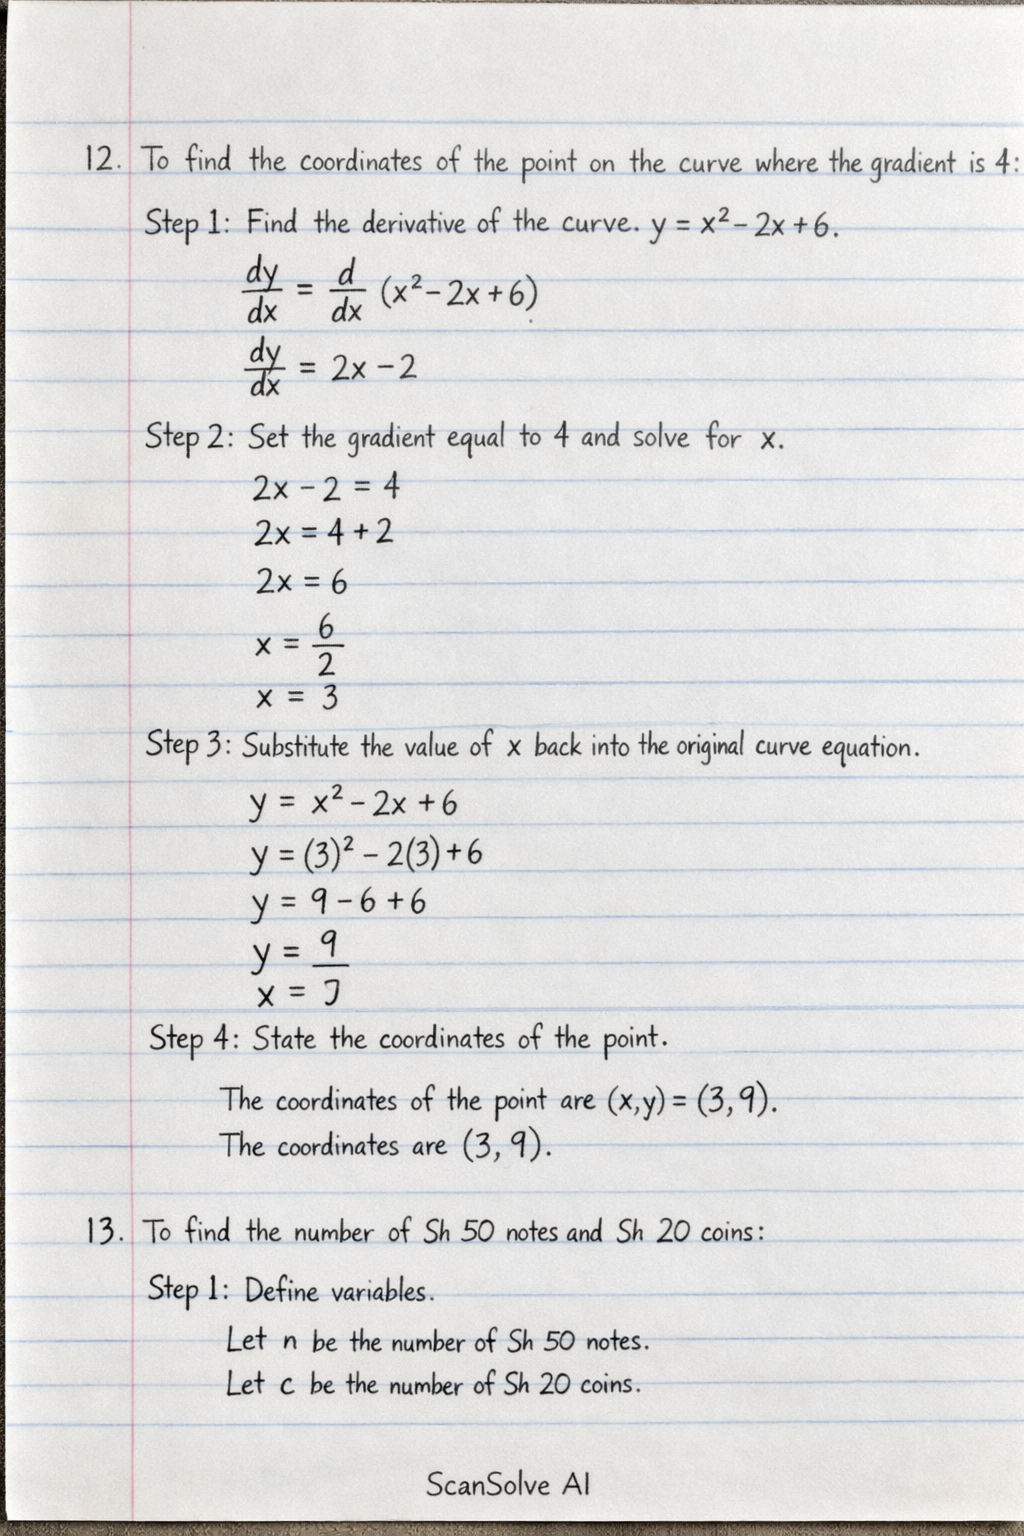 12. To find the coordinates of the point on the curve where the gradient is 4:
Step 1: Find the derivative of the curve. y = x² - 2x + 6.
dy/dx = d/dx (x² - 2x + 6)
dy/dx = 2x - 2
Step 2: Set the gradient equal to 4 and solve for x.
2x - 2 = 4
2x = 4 + 2
2x = 6
x = 6/2
x = 3
Step 3: Substitute the value of x back into the original curve equation.
y = x² - 2x + 6
y = (3)² - 2(3) + 6
y = 9 - 6 + 6
y = 9
x =
Step 4: State the coordinates of the point.
The coordinates of the point are (x,y) = (3, 9).
The coordinates are (3, 9).
13. To find the number of Sh 50 notes and Sh 20 coins:
Step 1: Define variables.
Let n be the number of Sh 50 notes.
Let c be the number of Sh 20 coins.
ScanSolve AI